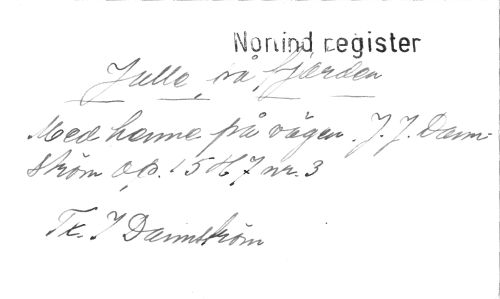 Norlind register
Julle på fjärden
Med henne på vägen. J. J. Dann-
ström op. 15 H 7 nr. 3
Tx. J Dannström